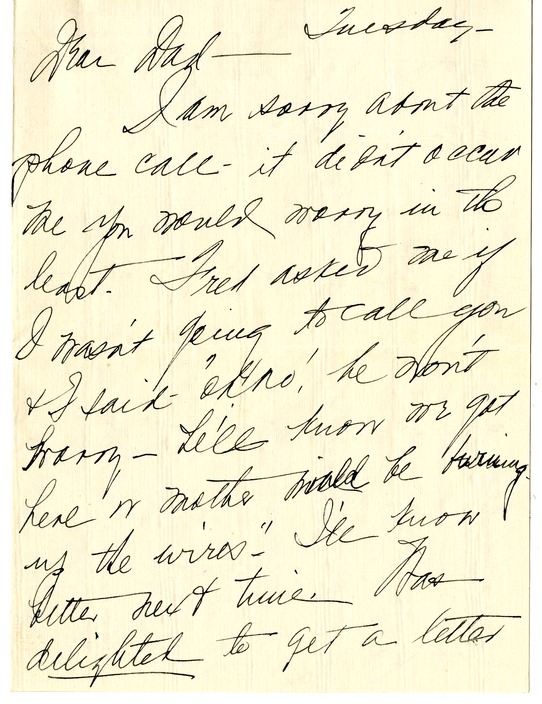 Tuesday—
Dear Dad—
I am sorry about the
phone call - it didn't occur
me you would worry in the
least. Fred asked me if
I wasn't going to call you
& I said - "oh no, he won't
worry — he'll know we got
here or mother would be burning
up the wires". I'll know
better next time. Was
delighted to get a letter